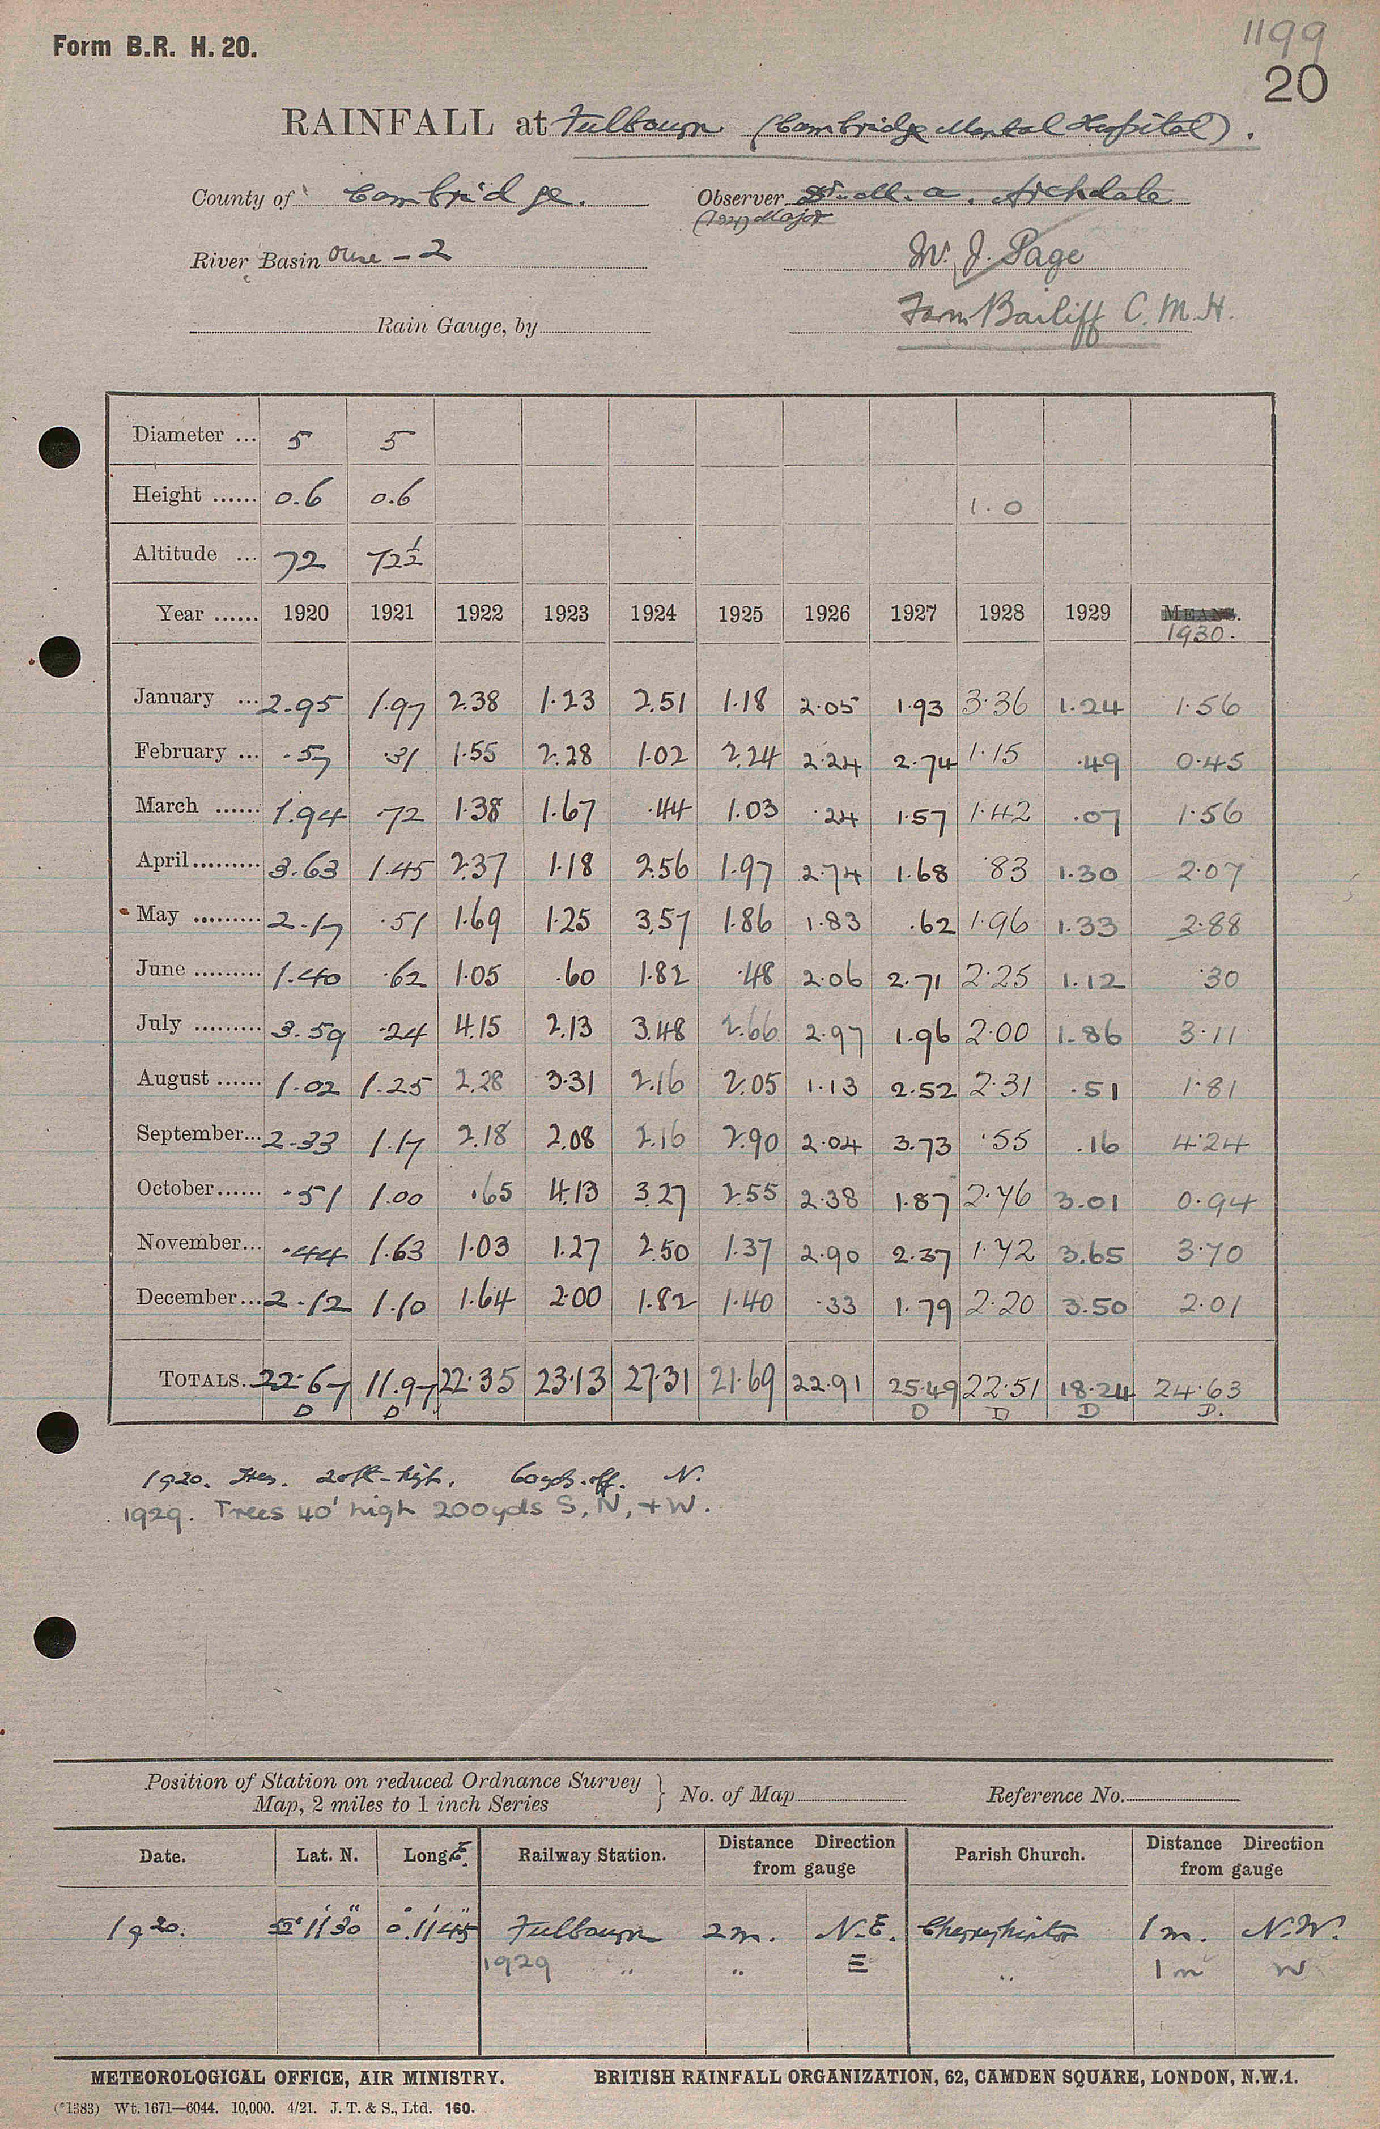 Form B.R. H. 20.
1199
20
RAINFALL at Fulbourn (Cambridge Mental Hospital).
County of Cambridge. Observer Dr. M. A. Archdale
(1921) Major
River Basin Ouse - 2 W. J. Page
Rain Gauge, by Farm Bailiff C. M. H.
Diameter ... 5 5
Height ...... 0.6 0.6 1.0
Altitude ... 72 72½
Year ...... 1920 1921 1922 1923 1924 1925 1926 1927 1928 1929 MEANS.
1930.
January ... 2.95 1.97 2.38 1.23 2.51 1.18 2.05 1.93 3.36 1.24 1.56
February ... .57 .31 1.55 2.28 1.02 2.24 2.24 2.74 1.15 .49 0.45
March ...... 1.94 .72 1.38 1.67 .44 1.03 .24 1.57 1.42 .07 1.56
April......... 3.63 1.45 2.37 1.18 2.56 1.97 2.74 1.68 .83 1.30 2.07
May ......... 2.17 .51 1.69 1.25 3.57 1.86 1.83 .62 1.96 1.33 2.88
June ......... 1.40 .62 1.05 .60 1.82 .48 2.06 2.71 2.25 1.12 .30
July ......... 3.59 .24 4.15 2.13 3.48 2.66 2.97 1.96 2.00 1.86 3.11
August ...... 1.02 1.25 2.28 3.31 2.16 2.05 1.13 2.52 2.31 .51 1.81
September... 2.33 1.17 2.18 2.08 2.16 2.90 2.04 3.73 .55 .16 4.24
October...... .51 1.00 .65 4.13 3.27 2.55 2.38 1.87 2.76 3.01 0.94
November... .44 1.63 1.03 1.27 2.50 1.37 2.90 2.37 1.72 3.65 3.70
December... 2.12 1.10 1.64 2.00 1.82 1.40 .33 1.79 2.20 3.50 2.01
TOTALS... 22.67 11.97 22.35 23.13 27.31 21.69 22.91 25.49 22.51 18.24 24.63
D D D D D D.
1920. Trees. 20ft. high. 60yds. off. N.
1929. Trees 40' high 200yds S, N, + W.
Position of Station on reduced Ordnance Survey
Map, 2 miles to 1 inch Series } No. of Map Reference No.
Date. Lat. N. Long E. Railway Station. Distance Direction from gauge Parish Church. Distance Direction from gauge
1920. 52° 11' 30" 0° 11' 45" Fulbourn 2m. N.E. Cherryhinton 1 m. N.W.
1929 " " E " 1 m W
METEOROLOGICAL OFFICE, AIR MINISTRY. BRITISH RAINFALL ORGANIZATION, 62, CAMDEN SQUARE, LONDON, N.W.1.
(*1383) Wt. 1671—6044. 10,000. 4/21. J. T. & S., Ltd. 160.